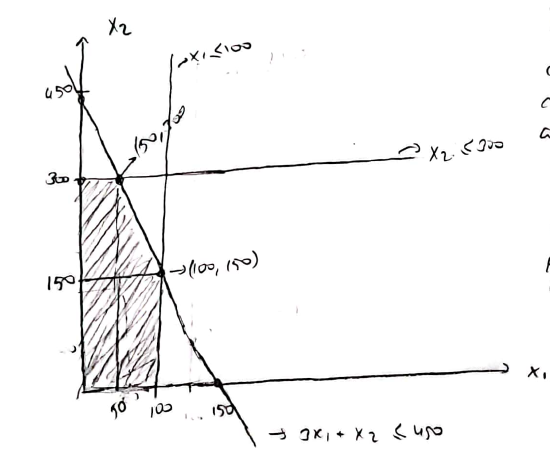 X₂
x₁ ≤ 100
450
(50, 300)
300
X₂ ≤ 300
→ (100, 150)
150
50 100 150
X₁
→ 3x₁ + x₂ ≤ 450